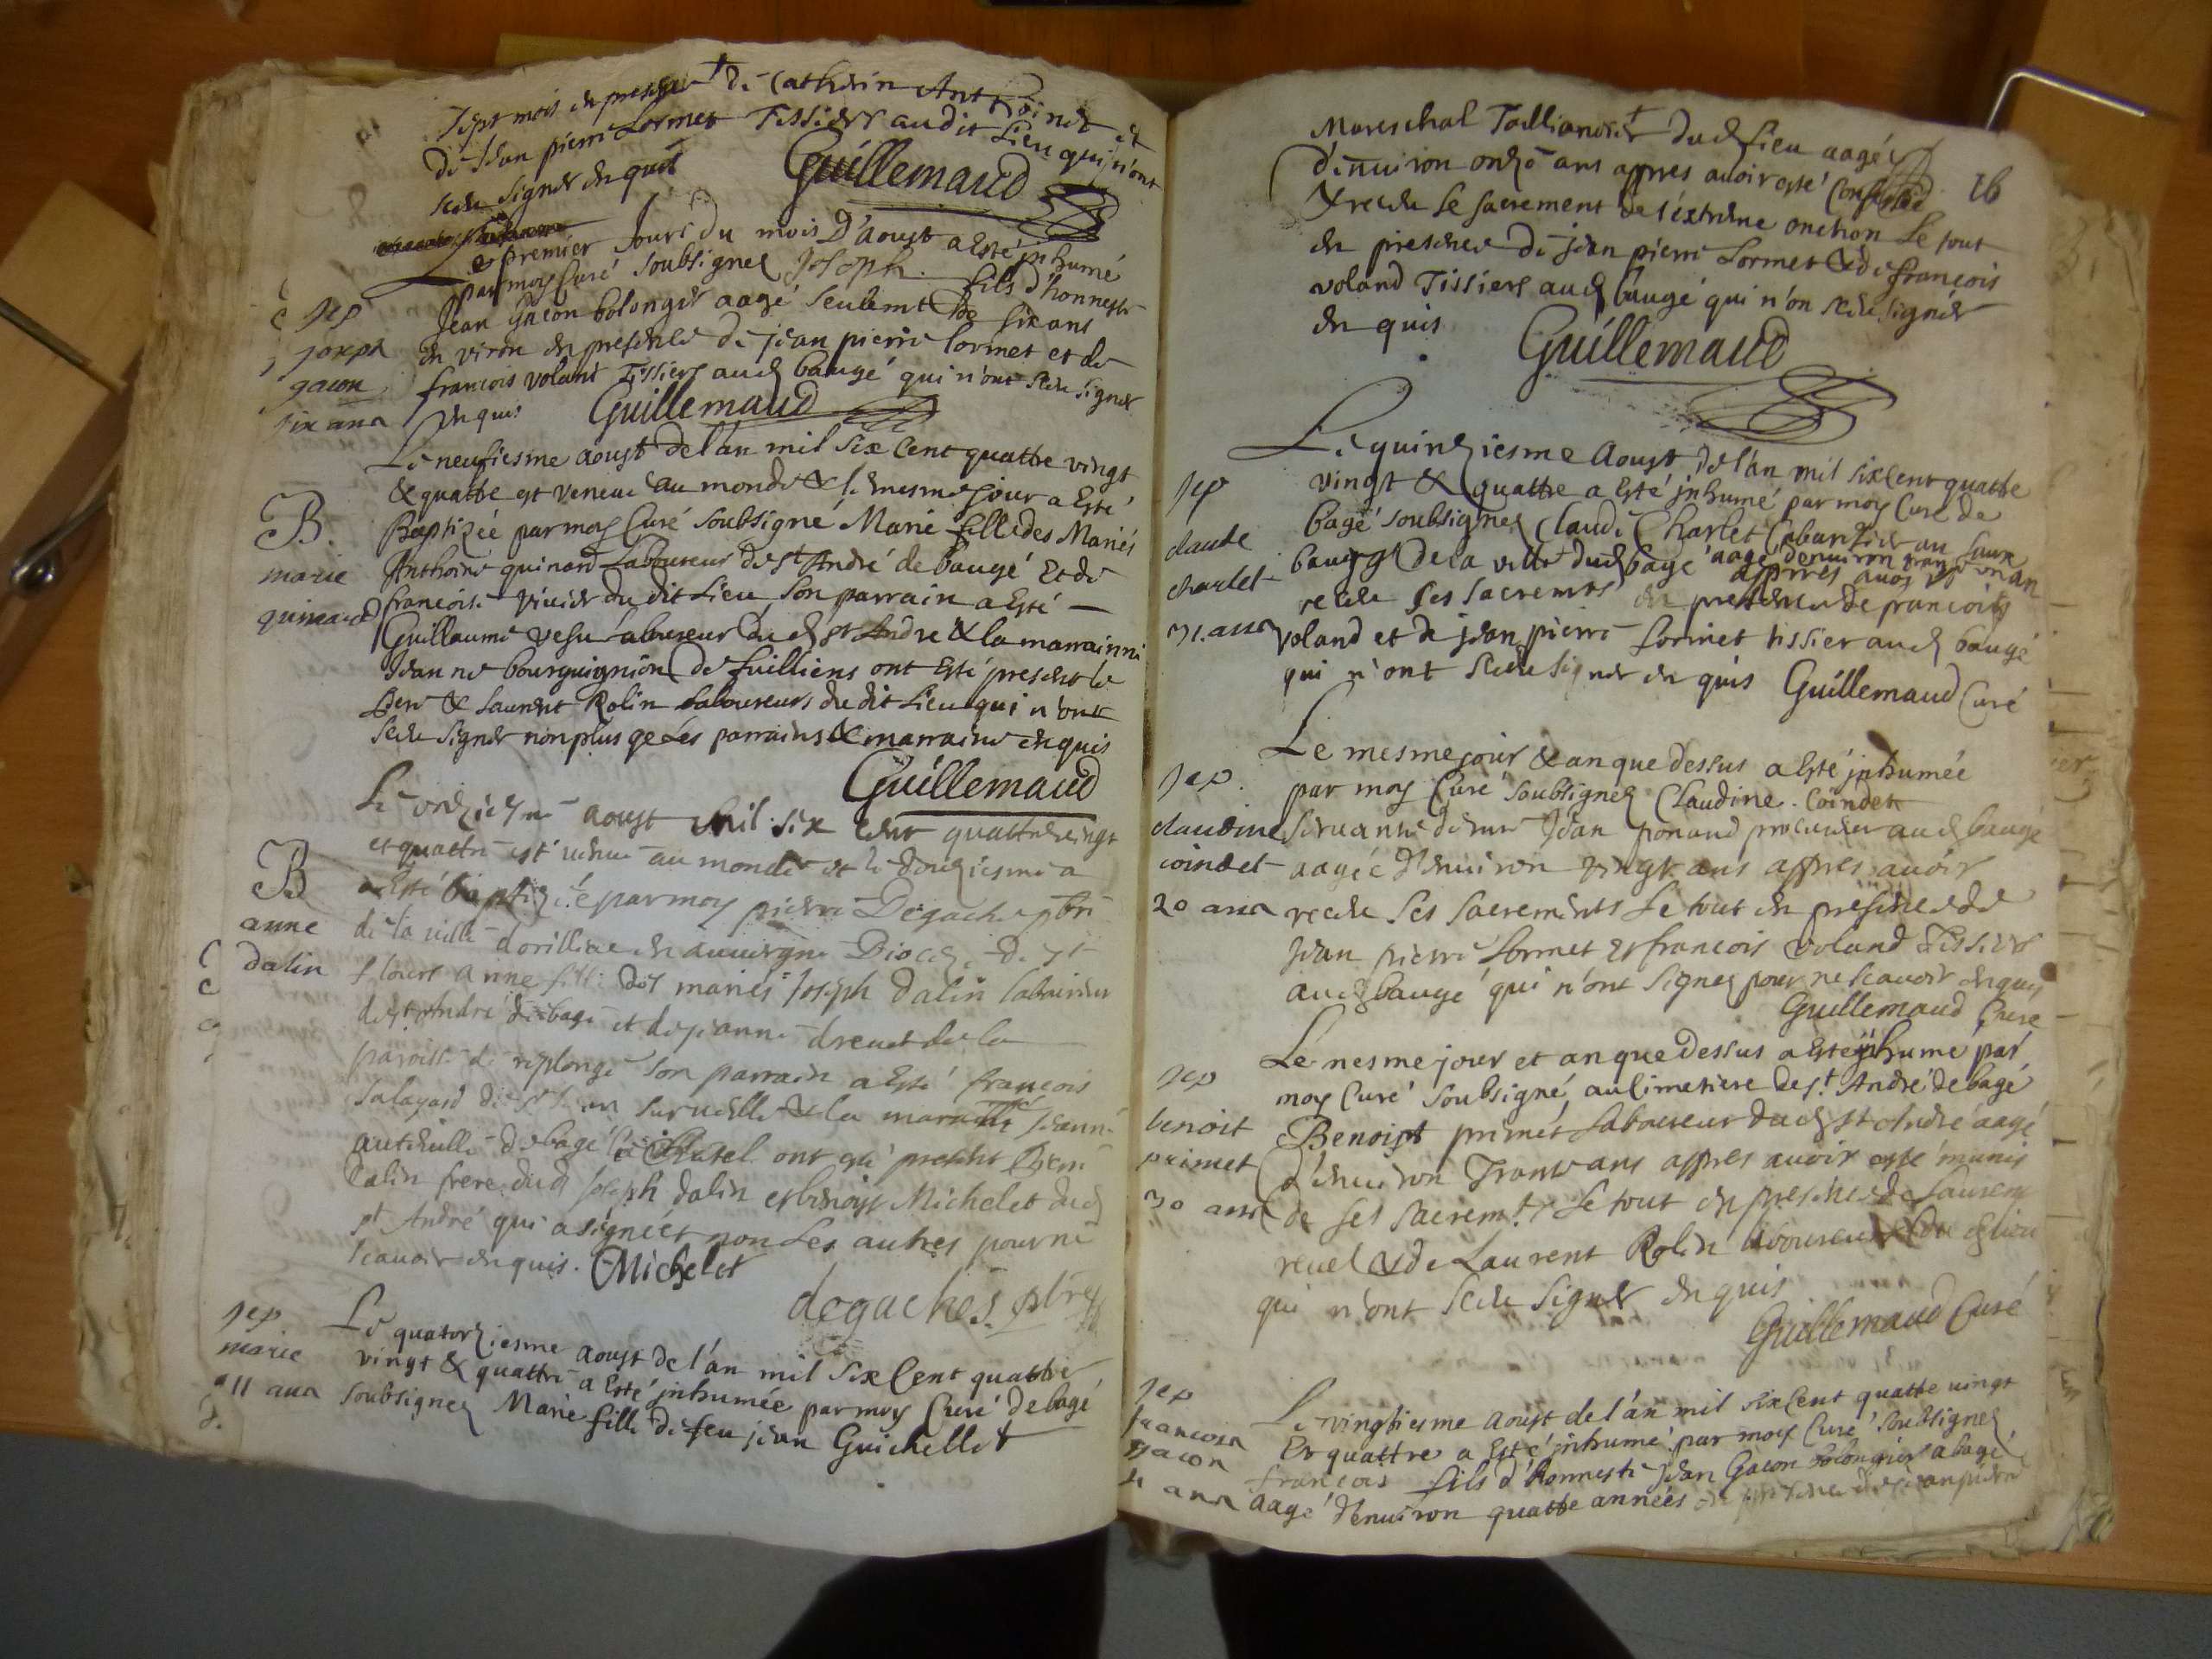 sept mois en presence de Catherin Anthoine et
de Jean pierre Lormet Tissiers audit Lieu qui n'ont
sceu signer enquis Guillemaud
Le premier Jour du mois D'aoust a Esté jnhumé
par moy Curé soubsigneZ Joseph fils d'honneste
Jean Gacon bolonger aagé seulemt de six ans
en viron en presence de jean pierre lormet et de
francois voland Tissiers aud baugé qui n'ont sceu signer
enquis Guillemaud
sep
joseph
gacon
six ans
Le neufiesme aoust de l'an mil six Cent quattre vingt
& quattre est veneue au monde & le mesme jour a Esté
Baptizée par moy Curé soubsigné Marie fille des Mariés
Anthoine quinard Laboureur de St André de baugé Et de
francoise vivier du dit Lieu son parrain a Esté
Guillaume vesu Laboureur dud st Andre & la marrainne
Jeanne bourguignion de fuilliens ont Esté present le
& Laurent Rolin Laboureurs du dit Lieu qui n'ont
sceu signer non plus qe Les parrains & marraine enquis
Guillemaud
B.
marie
quinard
Le onziesme aoust mil six cent quattre vingt
et quattre est venue au monde et le douziesme a
a Esté baptizée par moy pierre Degache pbre
de la ville dorillac en auvergne Diocese de st
flours anne fille des mariés Joseph Dalin laboureur
de st André de bage et de jeanne drevet de la
paroisse de replonge son parrain a Esté francois
Salagard de st Jean sur veille & la maraine Jeanne
de bagé le Chatel ont esté present
Dalin frere dud Joseph dalin et benoist Michelet dud
st André qui a signé et non Les autres pour ne
scavoir enquis. Michelet
degaches. pbre
B
anne
dalin
Le quatorziesme aoust de l'an mil six Cent quattre
vingt & quattre a Esté jnhumée par moy Curé de bagé
soubsigneZ Marie fille de feu jean Guichellet
sep
marie
11 ans
16
Mareschal Tailliandier dud Lieu aagéé
d'enuiron onze ans appres auoir esté Confessée
& receu le sacrement de l'extreme onction Le tout
en presence de jean pierre Lormet & de francois
voland Tissiers aud baugé qui n'on sceu signer
enquis Guillemaud
Le quinziesme Aoust de l'an mil six Cent quatre
vingt & quattre a Esté jnhumé par moy Curé de
bagé soubsigneZ Claude Charlet Cabaretier au faux
bourg de la ville dud bagé aagé denuiron trante vn an
appres auoir
receu ses sacremts en presence de francois
voland et de jean pierre Lormet tissier aud baugé
qui n'ont sceu signer enquis Guillemaud Curé
sep
claude
charlet
31. ans
Le mesme jour & an que dessus a Esté jnhumée
par moy Curé soubsigneZ Claudine Coindet
servante de mre Jean ponaud procureur aud baugé
aagée d'enuiron vingt ans appres auoir
receu ses sacrements Le tout en presence de
Jean pierre Lormet et francois voland Tissiers
aud baugé qui n'ont signez pour ne scauoir enquis
Guillemaud Curé
sep.
claudine
coindet
20 ans
Le mesme jour et an que dessus a Esté jnhumé par
moy Curé soubsigné au Cimetiere de st André de bagé
Benoist primet Laboureur dud st André aagé
d'enuiron Trante ans appres auoir esté munis
de ses sacremts Le tout en presence de Laurent
revel & de Laurent Rolin laboureurs dud Lieu
qui n'ont sceu signer enquis
Guillemaud Curé
sep
benoist
primet
30 ans
Le vingtiesme Aoust de l'an mil six Cent quatte vingt
Et quattre a Esté jnhumé par moy Curé soubsigneZ
francois fils d'honneste Jean Gacon bolongier a bagé
aagé d'enuiron quatte années en presence de jean pierre
sep
francois
gacon
4 ans